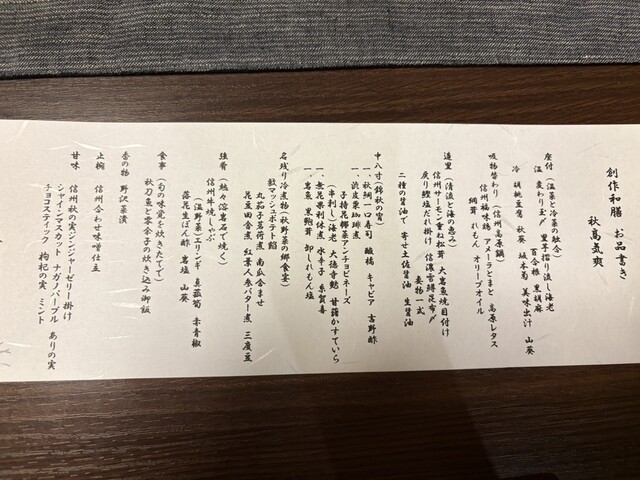 創作和膳 お品書き
秋高気爽
座付（温菜と冷菜の融合）
温 変わり玉〆 里芋摺り流し海老
百合根 黒胡麻
冷 胡桃豆腐 秋葵 坂本菊 美味出汁 山葵
吸物替わり（信州高原鍋）
信州福味鶏 アメーラとまと 高原レタス
網茸 れもん オリーブオイル
造里（清流と海の恵み）
信州サーモン重ね松茸 大岩魚焼目付け
戻り鰹塩だれ掛け 信濃雪鱒昆布〆
妻物一式
二種の醤油で 寄せ土佐醤油 生醤油
中八寸（錦秋の宵）
一、秋鯛一口寿司 酸橘 キャビア 吉野酢
一、渋皮栗珈琲煮
子持昆布菜アンチョビネーズ
（串刺し）海老 大徳寺麩 甘藷かすていら
一、無花果利休煮 水辛子 糸賀喜
一、岩魚 黒鮑茸 卸しれもん塩
名残り冷煮物（秋野菜の郷食宴）
敷マッシュポテト餡
丸茄子茗荷煮 南瓜含ませ
花豆田舎煮 紅葉人参バター煮 三度豆
強肴（熱々溶岩石で焼く）
信州牛焼しゃぶ
（温野菜）エリンギ 真菰筍 赤青椒
落花生ぽん酢 岩塩 山葵
食事（旬の味覚を炊きたてで）
秋刀魚と零余子の炊き込み御飯
香の物 野沢菜漬
止椀 信州合わせ味噌仕立
甘味 信州秋の実ジンジャーゼリー掛け
シャインマスカット ナガノパープル ありの実
チョコスティック 枸杞の実 ミント